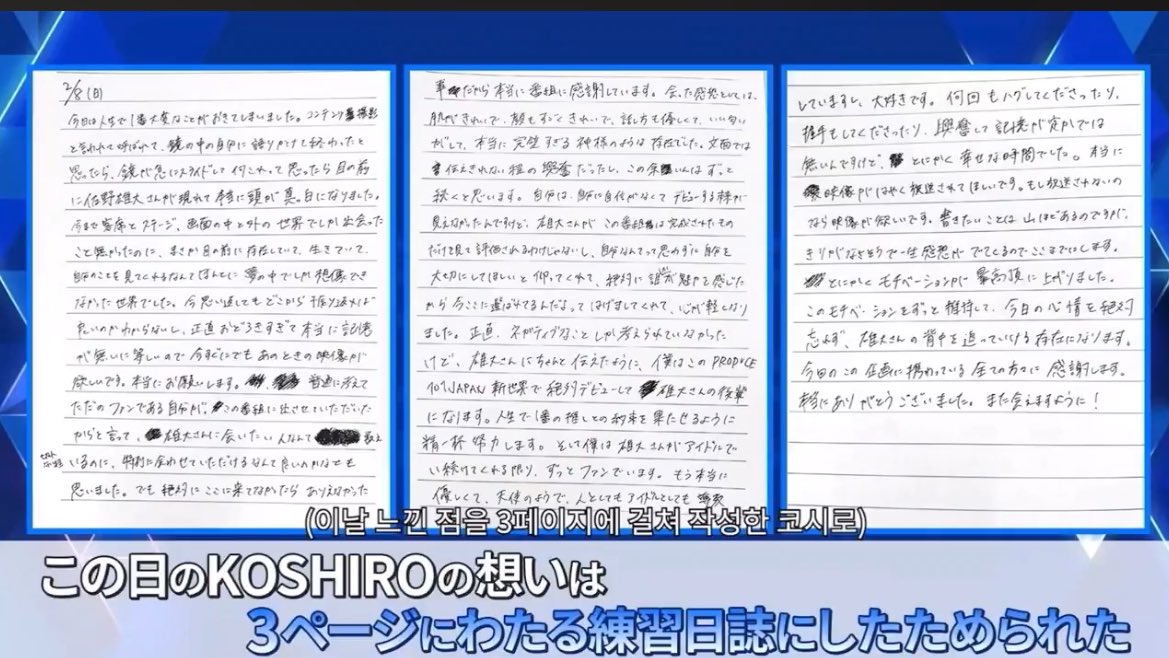 2/8(日)
今日は人生で1番大変なことがおきてしまいました。コンテンツ撮影
と言われて呼ばれて、鏡の中の自分に語りかけて終わったと
思ったら、鏡が急にスライドして何これって思ったら目の前
に佐野雄大さんが現れて本当に頭が真っ白になりました。
今まで客席とステージ、画面の中と外の世界でしか出会った
こと無かったのに、まさか目の前に存在していて、生きていて、
自分のことを見てくれるなんてほんとに夢の中でしか想像でき
なかった世界でした。今思い返してもどこから振り返れば
良いのかわからないし、正直おどろきすぎて本当に記憶
が無いに等しいので今すぐにでもあのときの映像が
欲しいです。本当にお願いします。普通に考えて
ただのファンである自分が、この番組に出させていただいた
からと言って、雄大さんに会いたい人なんて数え
いるのに、特別に会わせていただけるなんて良いのかなとも
思いました。でも絶対にここに来てなかったらありえなかった
事だから本当に番組に感謝しています。会った感想としては、
肌がきれいで、顔もすごくきれいで、話し方も優しくて、いい匂い
がして、本当に完璧すぎる神様のような存在でした。文面では
伝えきれない程の興奮だったし、この余韻はずっと
続くと思います。自分は、自分に自信がなくてデビューする姿が
見えなかったんですけど、雄大さんが この番組は完成されたもの
だけ見て評価されるわけじゃないし、自分なんてって思わずに自分を
大切にしてほしいと仰ってくれて、絶対に誰かが魅力を感じた
から今ここに選ばれてるんだよってはげましてくれて、心が軽くなり
ました。正直、ネガティブなことしか考えられていなかった
けど、雄大さんにちゃんと伝えたように、僕はこのPRODUCE
101 JAPAN 新世界で絶対デビューして雄大さんの後輩
になります。人生で1番の推しとの約束を果たせるように
精一杯努力します。そして僕は雄大さんがアイドルで
い続けてくれる限り、ずっとファンでいます。もう本当に
優しくて、天使のようで、人としてもアイドルとしても尊敬
していますし、大好きです。何回もハグしてくださったり、
握手もしてくださったり、興奮して記憶が定かでは
無いんですけど、とにかく幸せな時間でした。本当に
映像がはやく放送されてほしいです。もし放送されないの
なら映像が欲しいです。書きたいことは山ほどあるのですが、
きりがなさそうで一生感想がでてくるのでここまでにします。
とにかくモチベーションが最高頂に上がりました。
このモチベーションをずっと維持して、今日の心情を絶対
忘れず、雄大さんの背中を追っていける存在になります。
今回のこの企画に携わっている全ての方々に感謝します。
本当にありがとうございました。また会えますように！
(이날 느낀 점을 3페이지에 걸쳐 작성한 코시로)
この日のKOSHIROの想いは
3ページにわたる練習日誌にしたためられた